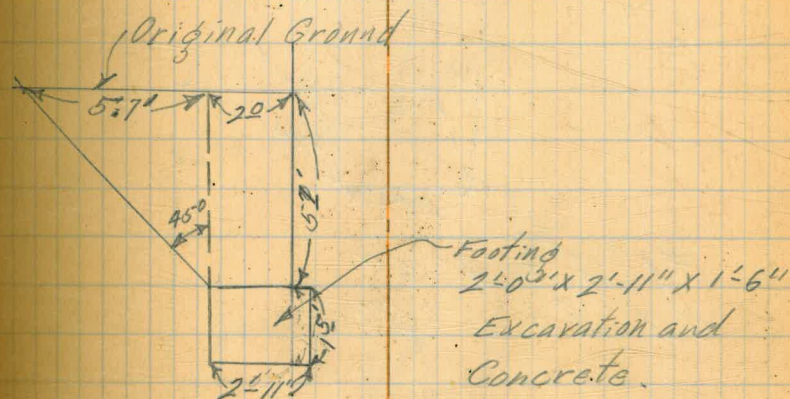 Original Ground
5.7'
2.0
45°
Footing
2'-0" X 2'-11" X 1'-6"
Excavation and
Concrete.
2'-11"